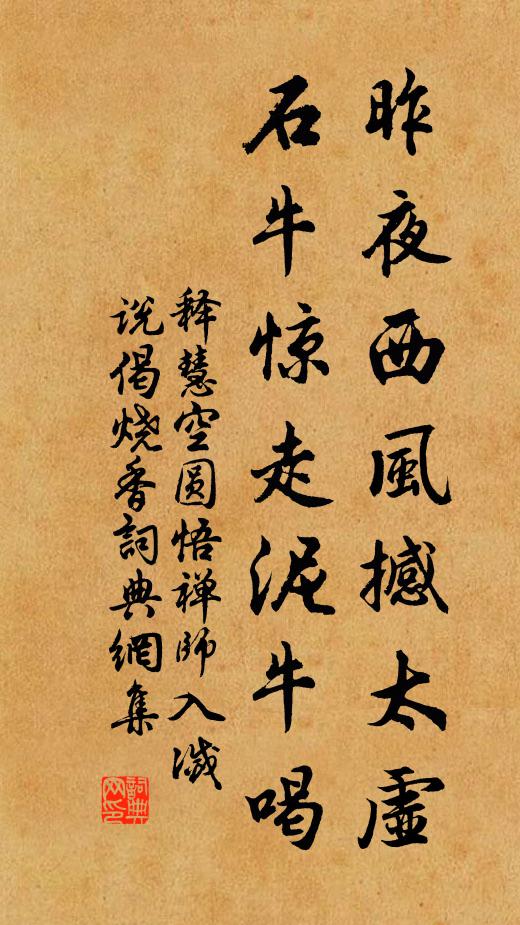 昨夜西風撼太虛
石牛惊走泥牛喝
释慧空圆悟禅师入滅
说偈烧香詞典網集
詞典
网印